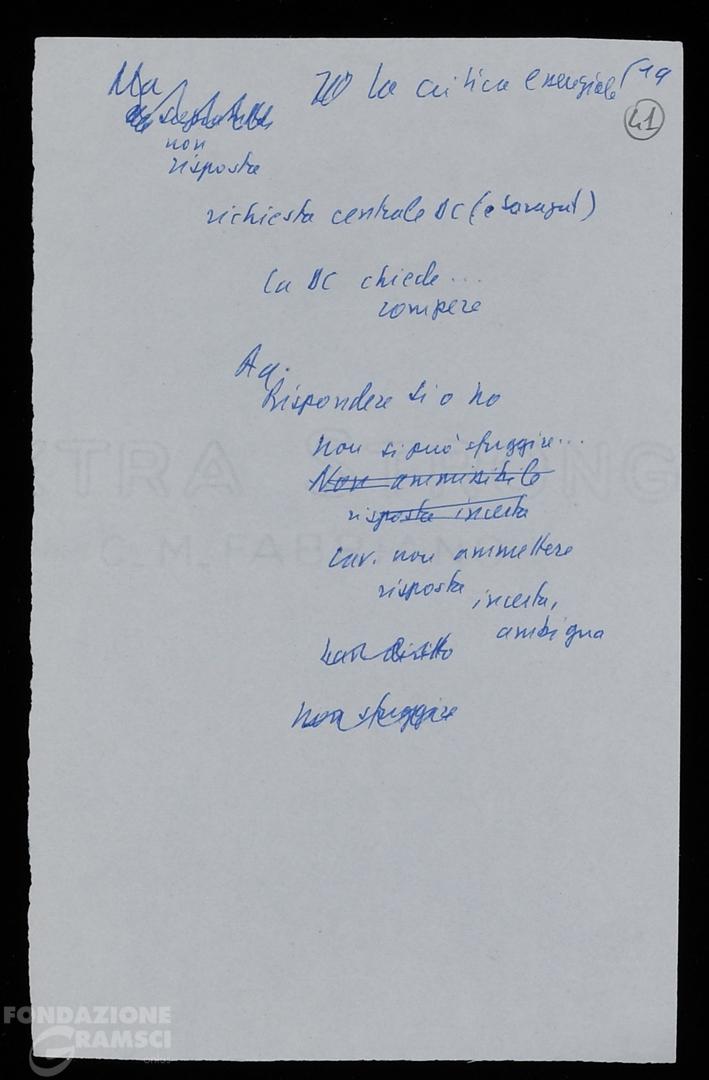 Ma la critica essenziale 19
41
non
risposta
richiesta centrale DC (e Saragat)
la DC chiede...
rompere
Rispondere si o no
non si può sfuggire...
Non ammissibile
risposta incerta
non ammettere
risposta incerta,
ambigua
diritto
non sfuggire
EXTRA STRONG
C. M. FABRIANO
FONDAZIONE
GRAMSCI
ONLUS